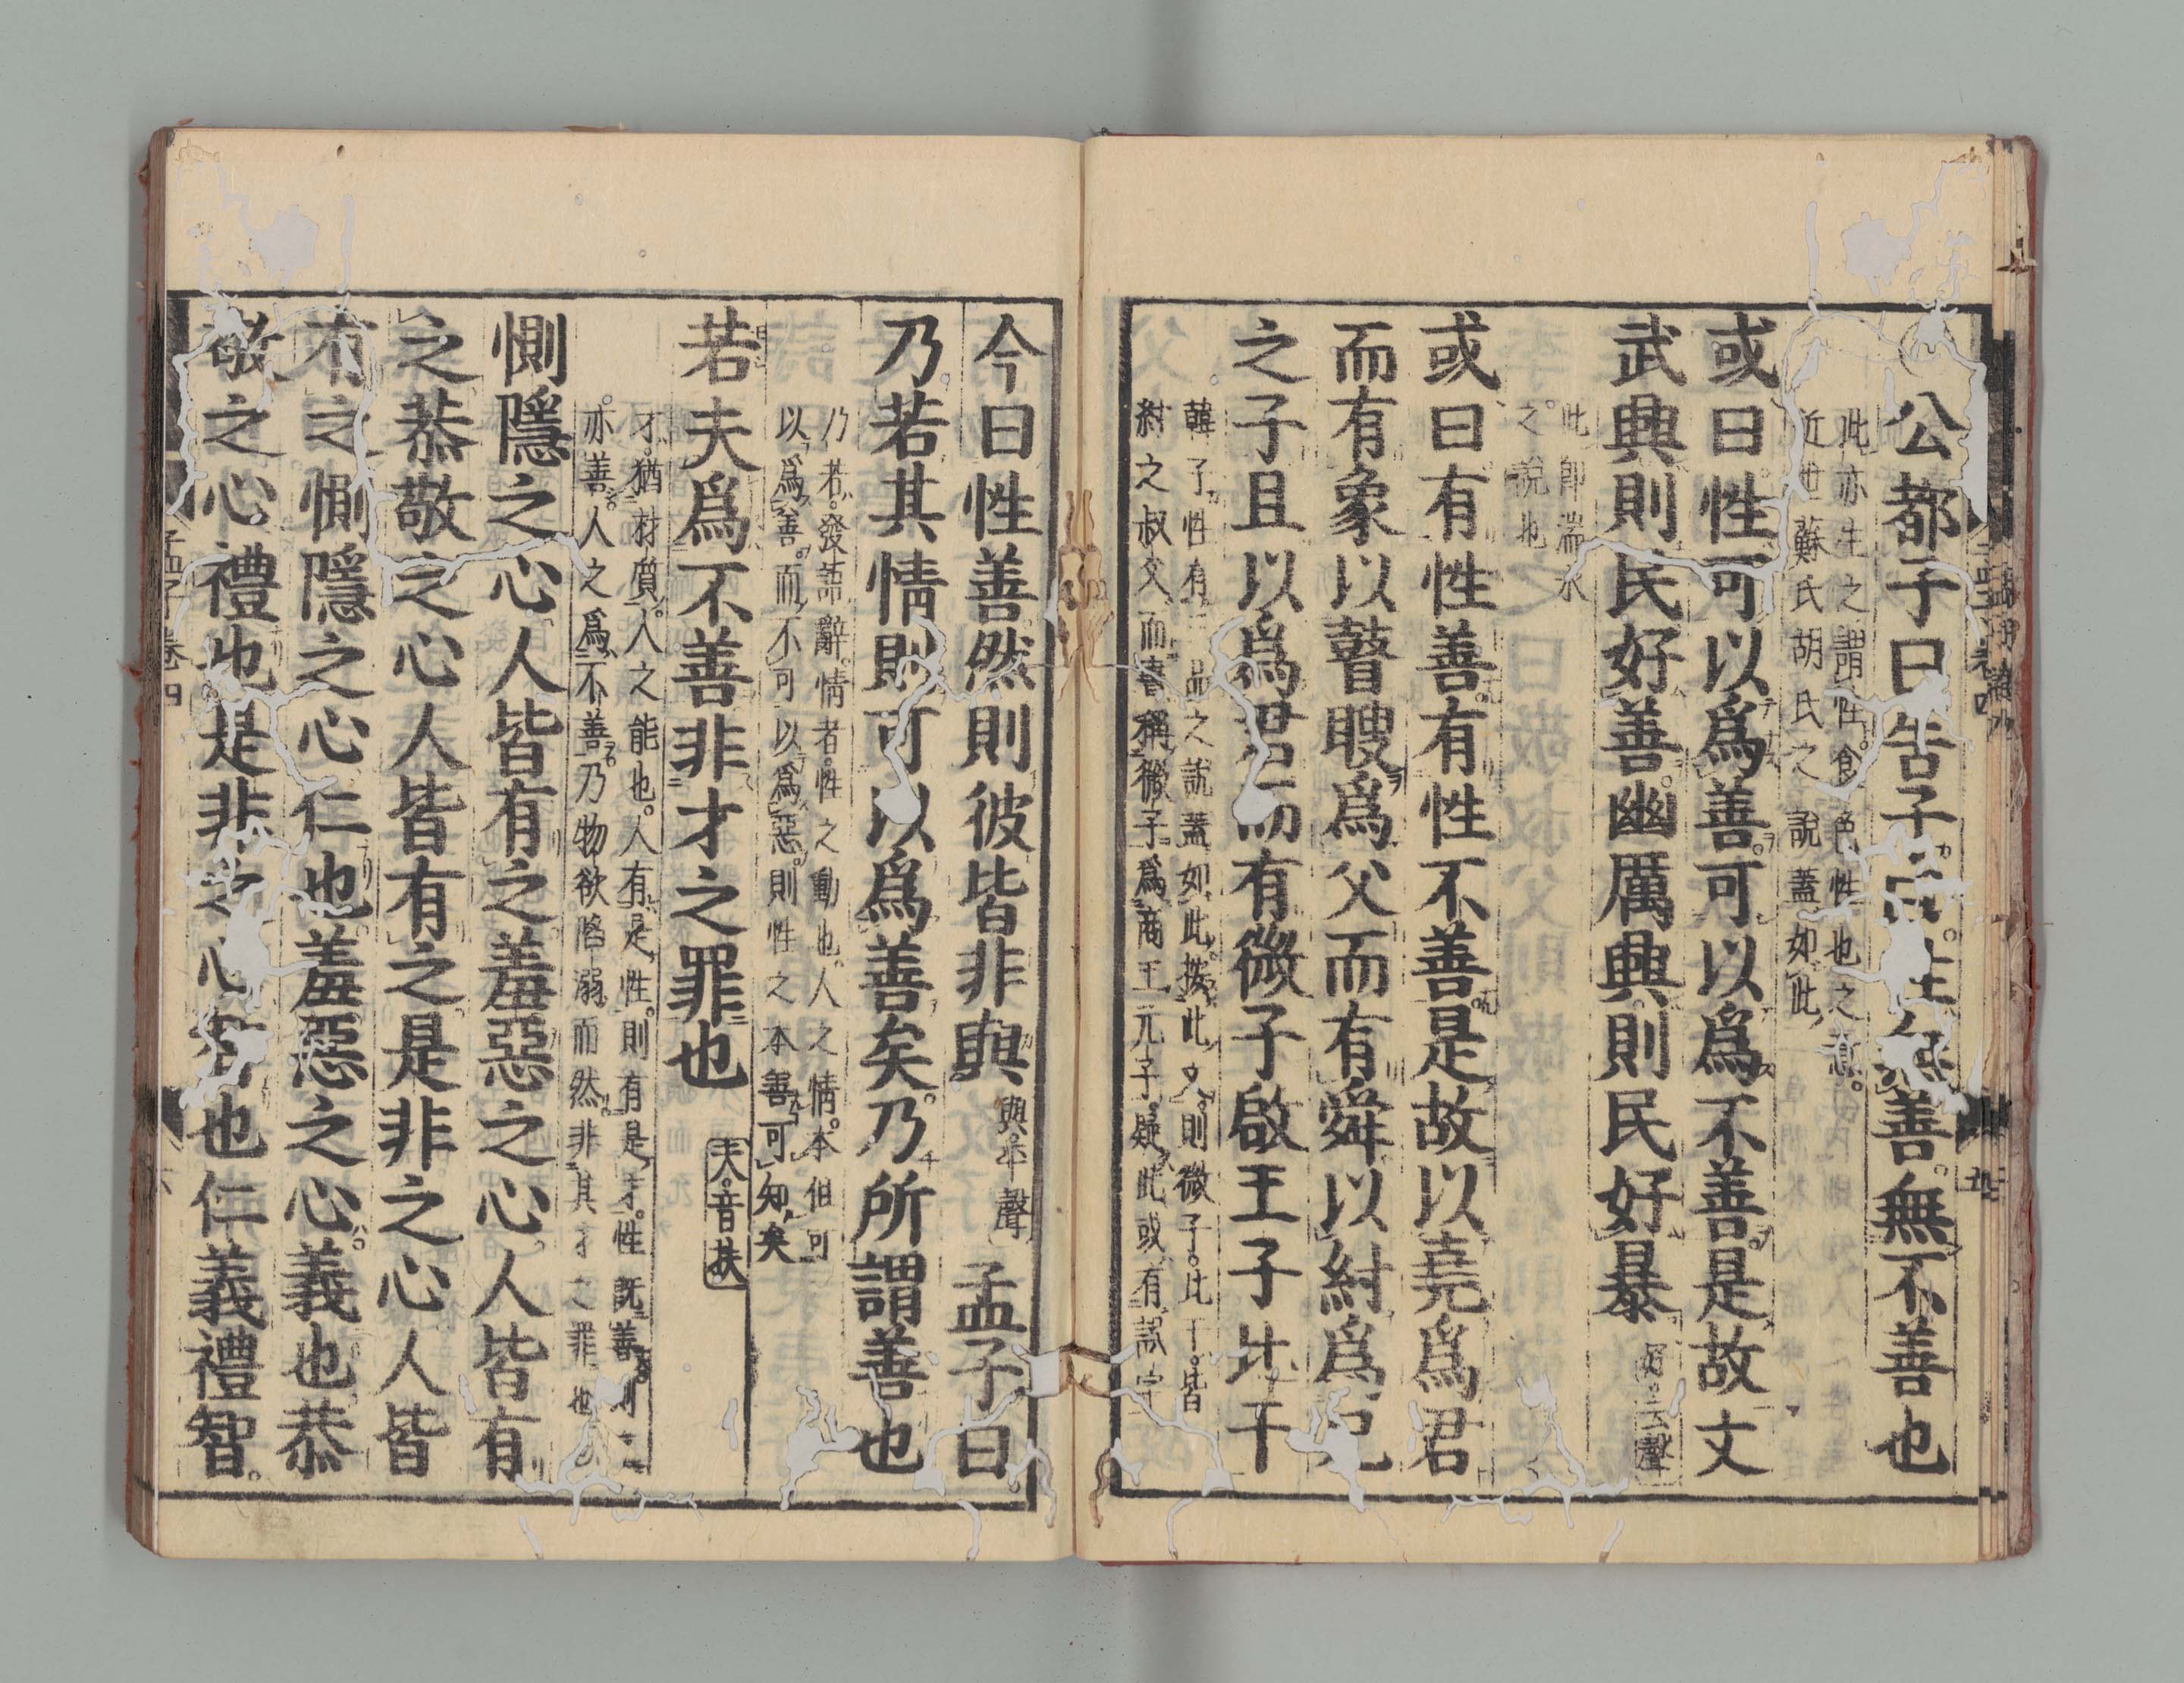 公都子曰告子曰性無善無不善也
此亦生之謂性食色性也之意
近世蘇氏胡氏之說蓋如此
或曰性可以爲善可以爲不善是故文
武興則民好善幽厲興則民好暴
好去聲
此卽湍水
之說也
或曰有性善有性不善是故以堯爲君
而有象以瞽瞍爲父而有舜以紂爲兄
之子且以爲君而有微子啟王子比干
韓子性有三品之說蓋如此按此文則微子比干皆
紂之叔父而書稱微子爲商王元子疑此或有誤字
今曰性善然則彼皆非與
與平聲
孟子曰
乃若其情則可以爲善矣乃所謂善也
乃若發語辭情者性之動也人之情本但可
以爲善而不可以爲惡則性之本善可知矣
若夫爲不善非才之罪也
夫音扶
才猶材質人之能也人有是性則有是才性既善則才
亦善人之爲不善乃物欲陷溺而然非其才之罪也
惻隱之心人皆有之羞惡之心人皆有
之恭敬之心人皆有之是非之心人皆
有之惻隱之心仁也羞惡之心義也恭
敬之心禮也是非之心智也仁義禮智
孟子卷四